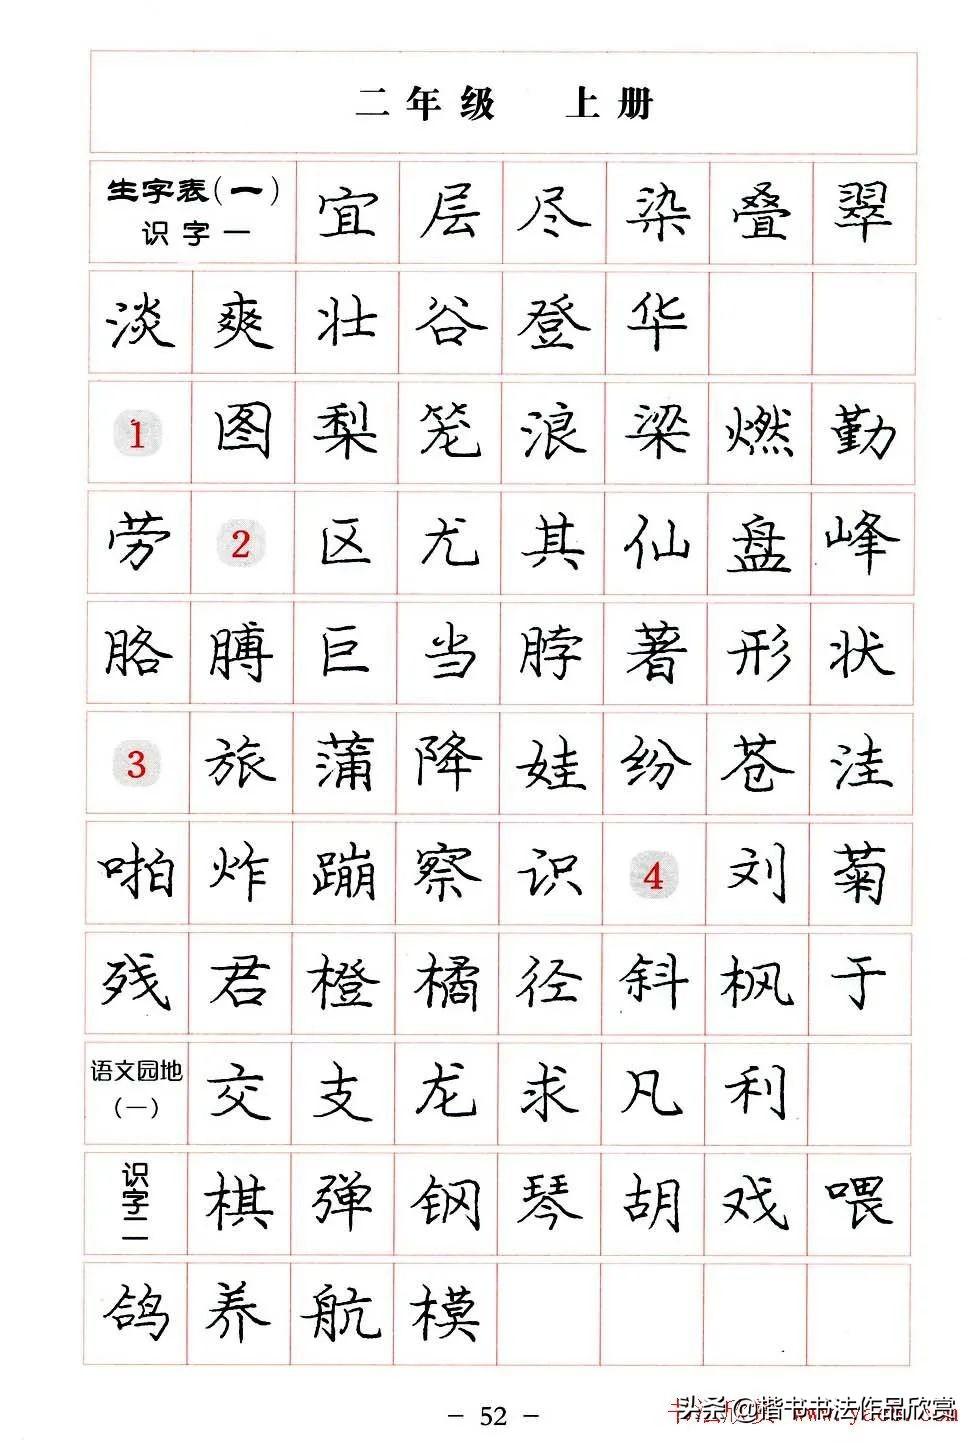 二年级 上册
生字表(一) 宜 层 尽 染 叠 翠
识字一
淡 爽 壮 谷 登 华
1 图 梨 笼 浪 梁 燃 勤
劳 2 区 尤 其 仙 盘 峰
胳 膊 巨 当 脖 著 形 状
3 旅 蒲 降 娃 纷 苍 洼
啪 炸 蹦 察 识 4 刘 菊
残 君 橙 橘 径 斜 枫 于
语文园地(一) 交 支 龙 求 凡 利
识字二 棋 弹 钢 琴 胡 戏 喂
鸽 养 航 模
- 52 -
头条@楷书书法作品欣赏